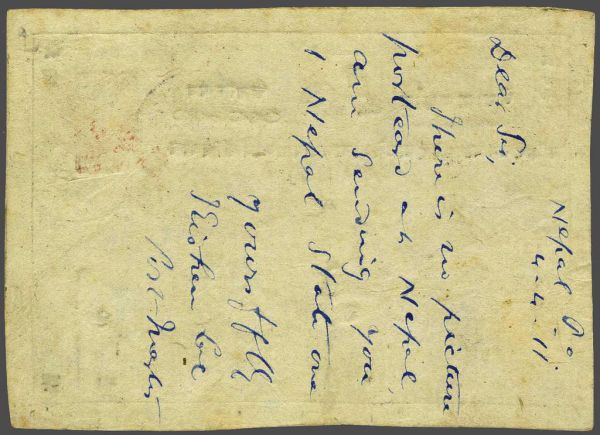 Nepal P.O.
4-4-11
Dear Sir,
There is no picture
postcard at Nepal,
am sending you
1 Nepal State one
yours ffly
Kishen Lal
Post Master